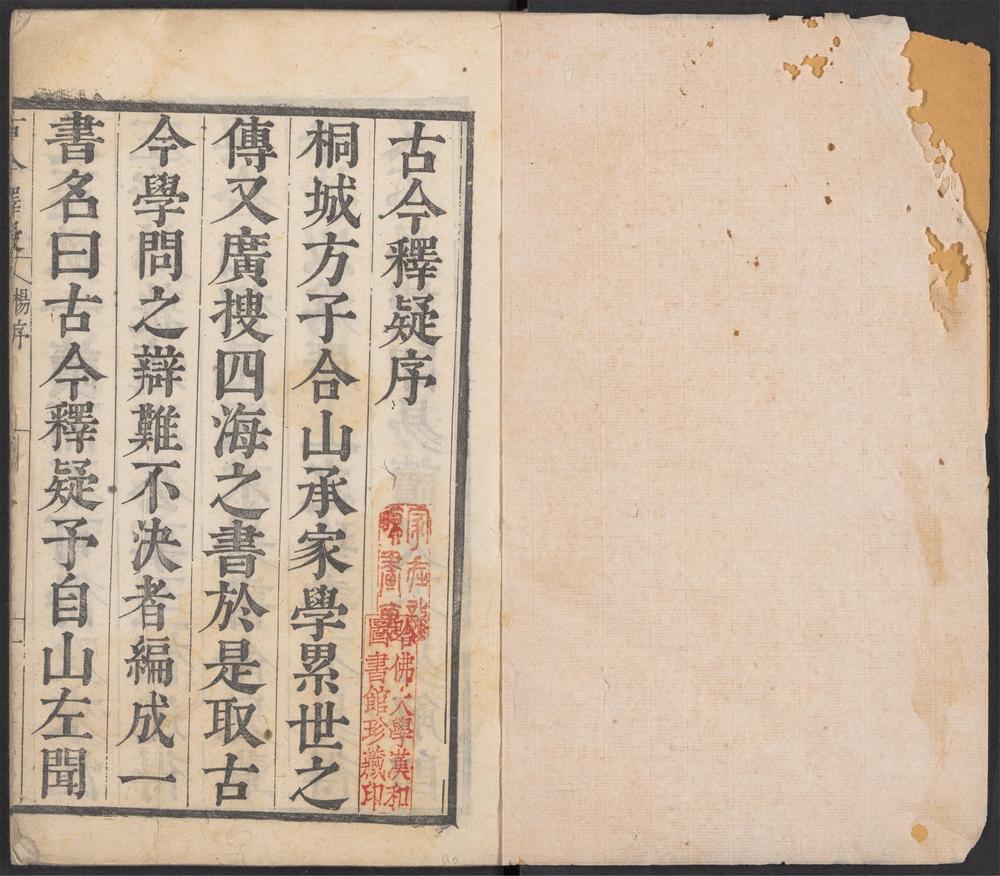 古今釋疑序
桐城方子合山承家學累世之
傳又廣搜四海之書於是取古
今學問之辯難不決者編成一
書名曰古今釋疑予自山左聞
楊序
哈佛大學漢和
圖書館珍藏印